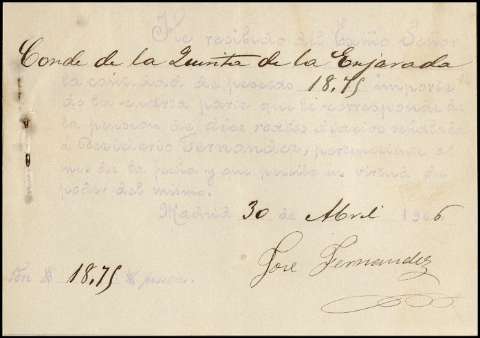 He recibido del Exmo Señor
Conde de la Quinta de la Enjarada
la cantidad de pesetas 18,75 importe
de la cuarta parte que le corresponde de
la pension de diez reales diarios
á Fernandez, perteneciente al
mes de la fecha y que percibo en virtud de
poder del mismo.
Madrid 30 de Abril 1906
Son # 18,75 # pesetas.
José Fernandez